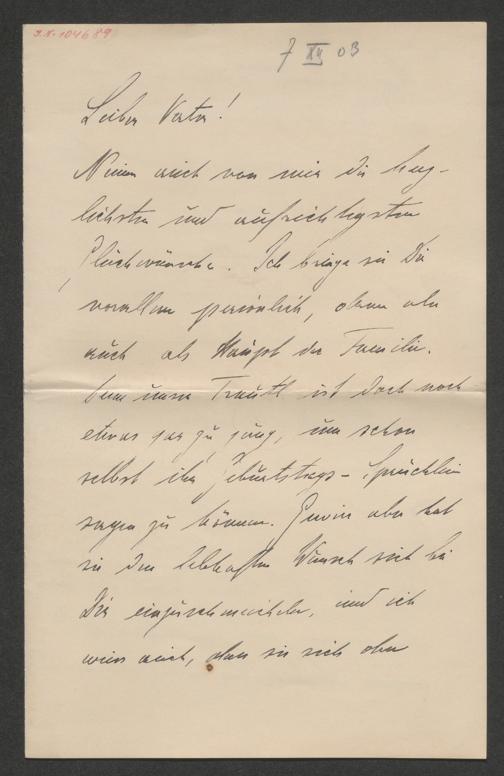 I.N. 104689
7 XII 03
Lieber Vater!
Nimm auch von mir die herz-
lichsten und aufrichtigsten
Glückwünsche. Ich bringe sie Dir
vorallem persönlich, dann aber
auch als Haupt der Familie.
Denn unser Trautl ist doch noch
etwas gar zu jung, um schon
selbst ihr Geburtstags-Sprüchlein
sagen zu können. Gewiss aber hat
sie den lebhaften Wunsch sich bei
Dir einzuschmeicheln, und ich
weiss auch, dass sie sich aber